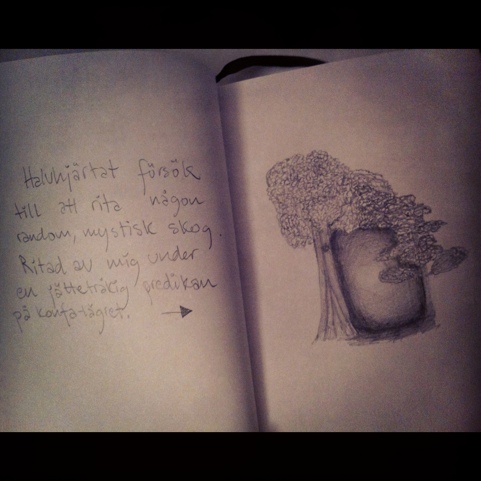 Halvhjärtat försök
till att rita någon
random, mystisk skog.
Ritad av mig under
en jättetråkig predikan
på konfa-lägret.